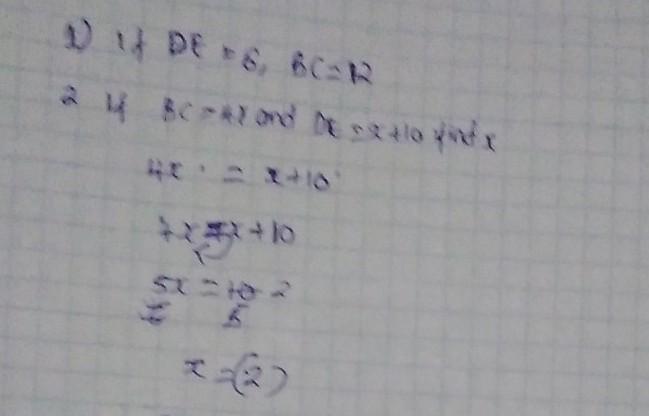 1) if DE = 6, BC = 12
2 If BC = 4x and DE = x+10 find x
4x = x+10
7x x+10
5x = 10 2
5 5
x = (2)